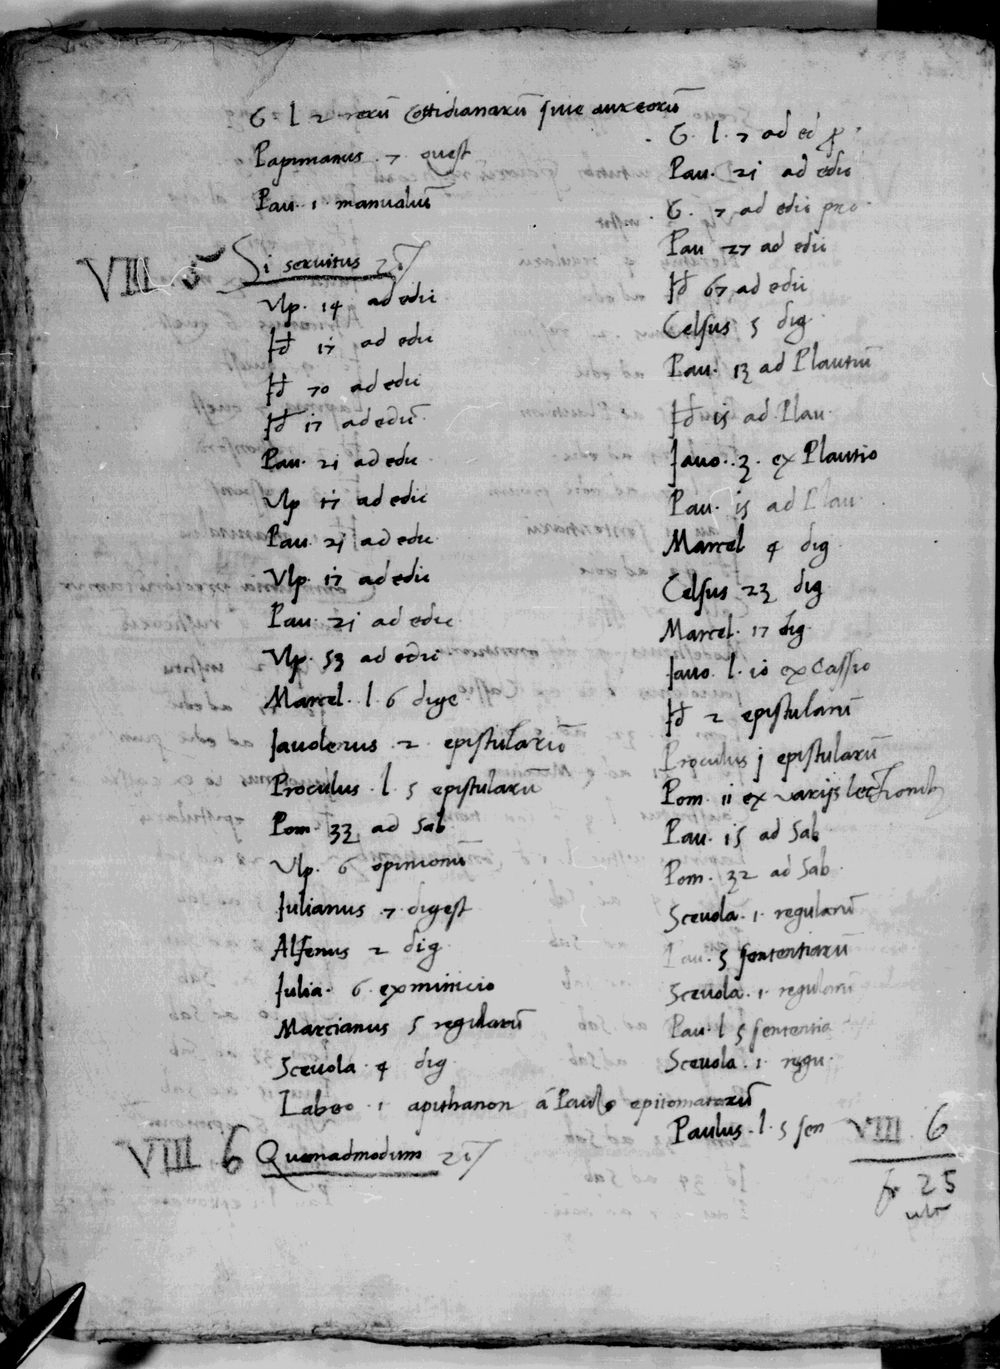 G. l. 2. rerū Cottidianarū siue aureorū
Papinianus . 7 . quest
Pau. 1 manualiū
VIII 5 Si seruitus 21/
Vlp. 14 ad edic
Id 17 ad edic
Id 70 ad edic
Id 17 ad edicū
Pau. 21 ad edic
Vlp 17 ad edic
Pau. 21 ad edic
Vlp. 17 ad edic
Pau. 21 ad edic
Vlp. 53 ad edic
Marcel. l. 6 dige
Iauolenus 2 epistularū
Proculus . l. 5 epistularū
Pom. 33 ad Sab
Vlp. 6 opinionū
Iulianus 7 digest
Alfenus 2 dig
Iulia. 6 ex minicio
Marcianus 5 regularū
Sceuola . 4 dig
Labeo . 1 apithanon á Paulo epitomatorū
VIII 6 Quemadmodum 21/
G. l. 7 ad ed p
Pau. 21 ad edic
G. 7 ad edic pro
Pau 27 ad edic
Id 67 ad edic
Celsus 5 dig
Pau. 13 ad Plautiū
Id 15 ad Plau.
Iauo. 3. ex Plautio
Pau. 15 ad Plau
Marcel 4 dig
Celsus 23 dig
Marcel. 17 dig
Iauo. l. 10 ex Cassio
Id 2 epistularū
Proculus j epistularū
Pom. 11 ex varijs lectionib
Pau. 15 ad Sab
Pom. 32 ad Sab
Sceuola . 1. regularū
Pau. 5 sententiarū
Sceuola . 1. regularū
Pau. l 5 sententia
Sceuola . 1. regu.
Paulus . l. 5 sen VIII . 6
fr 25
ult